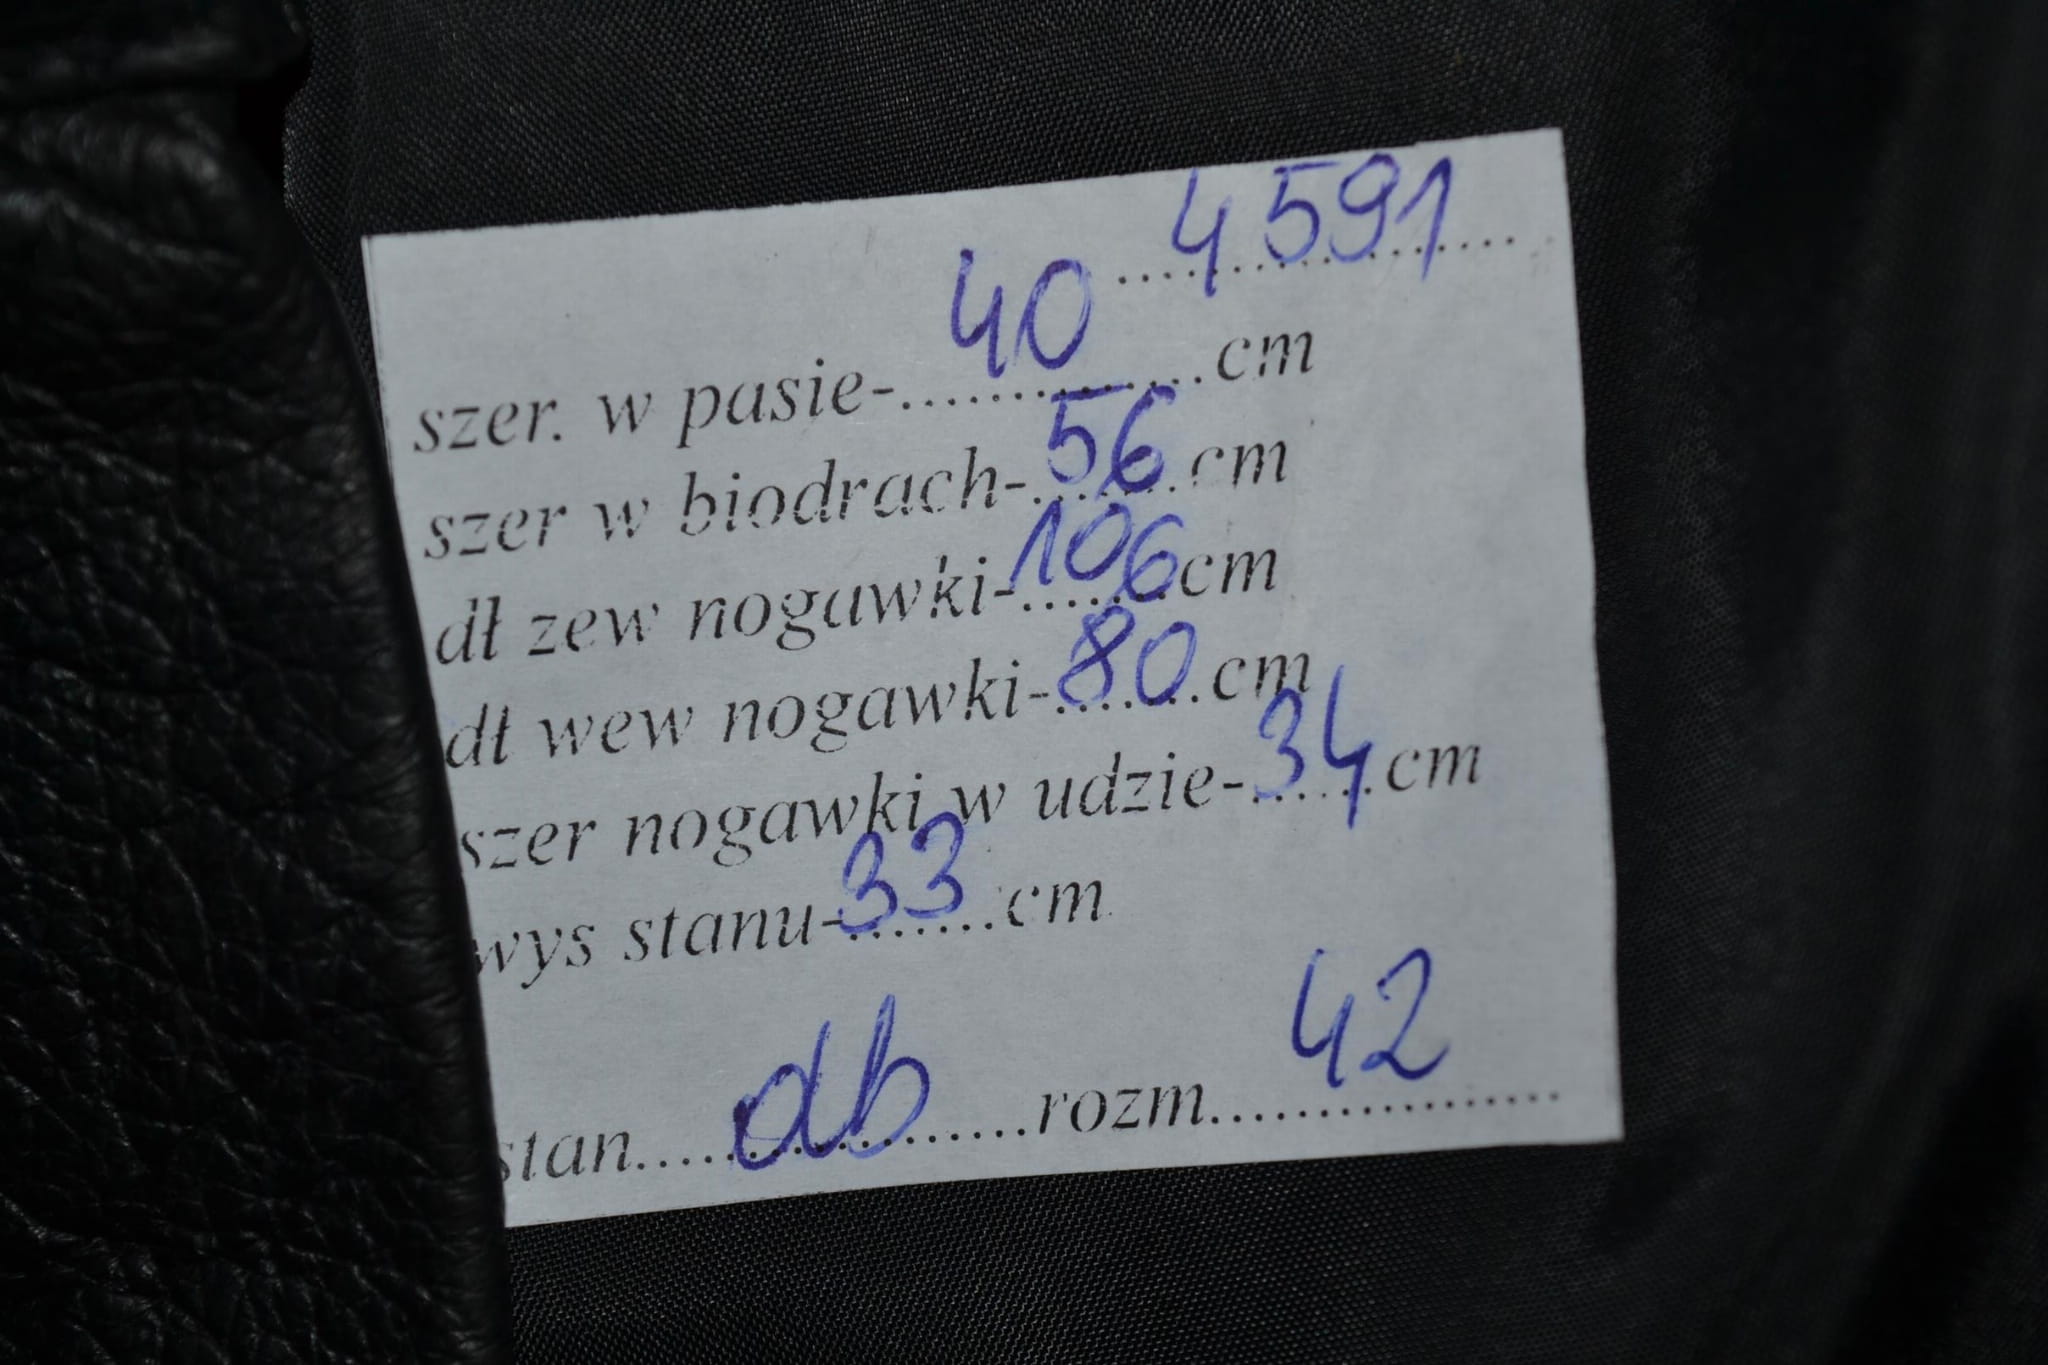 4591
szer. w pasie-40cm
szer w biodrach-56cm
dł zew nogawki-106cm
dł wew nogawki-80cm
szer nogawki w udzie-34cm
wys stanu-33cm
stan....db....rozm....42